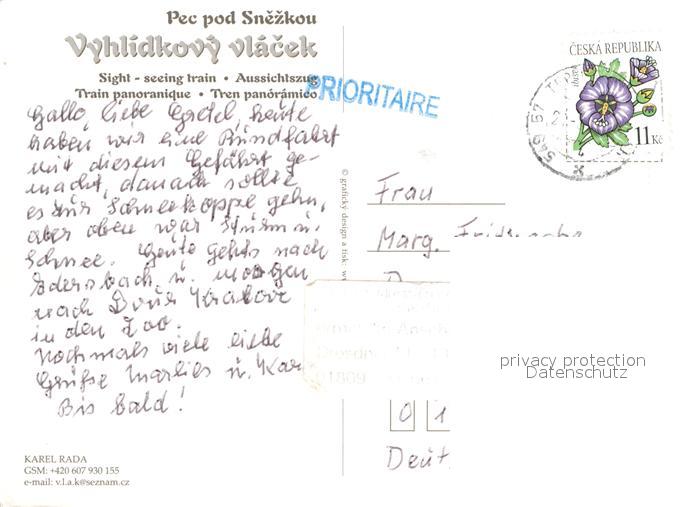 Pec pod Sněžkou
Vyhlídkový vláček
Sight - seeing train • Aussichtszug
Train panoranique • Tren panorámico
PRIORITAIRE
Hallo, liebe Gretel, heute
haben wir eine Rundfahrt
mit diesem Gefährt ge-
macht, danach sollte
es zur Schneekoppe gehn,
aber oben war Sturm u.
Schnee. Heute gehts nach
u. morgen
nach Dvůr Králové
in den Zoo.
Nochmals viele liebe
Grüße Marlies u. Kar
Bis bald!
KAREL RADA
GSM: +420 607 930 155
e-mail: v.l.a.k@seznam.cz
© grafický design a tisk: w
ČESKÁ REPUBLIKA
11 Kč
542 57
Frau
Marg.
Dresdn
01809
0 1
Deut
privacy protection
Datenschutz